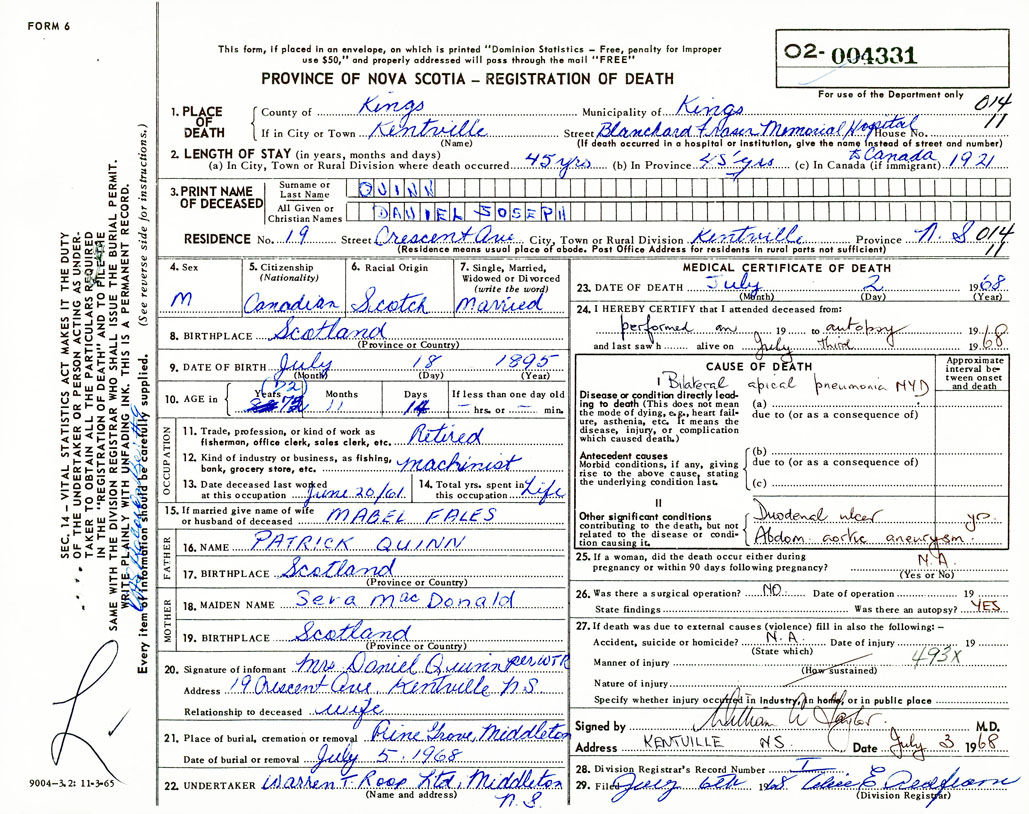 FORM 6
This form, if placed in an envelope, on which is printed "Dominion Statistics – Free, penalty for improper
use $50," and properly addressed will pass through the mail "FREE"
02- 004331
PROVINCE OF NOVA SCOTIA – REGISTRATION OF DEATH
For use of the Department only
014
11
1. PLACE OF DEATH
County of Kings Municipality of Kings
If in City or Town Kentville Street Blanchard Fraser Memorial Hospital House No.
(Name) (If death occurred in a hospital or institution, give the name instead of street and number)
2. LENGTH OF STAY (in years, months and days) to Canada
(a) In City, Town or Rural Division where death occurred 45 yrs (b) In Province 45 yrs (c) In Canada (if immigrant) 1921
3. PRINT NAME OF DECEASED
Surname or Last Name QUINN
All Given or Christian Names DANIEL JOSEPH
RESIDENCE No. 19 Street Crescent Ave City, Town or Rural Division Kentville Province N. S 014
(Residence means usual place of abode. Post Office Address for residents in rural parts not sufficient) 11
4. Sex M
5. Citizenship (Nationality) Canadian
6. Racial Origin Scotch
7. Single, Married, Widowed or Divorced (write the word) Married
8. BIRTHPLACE Scotland
(Province or Country)
9. DATE OF BIRTH July 18 1895
(Month) (Day) (Year)
10. AGE in Years (72) 72 Months 11 Days 14 If less than one day old – hrs. or – min.
OCCUPATION
11. Trade, profession, or kind of work as fisherman, office clerk, sales clerk, etc. Retired
12. Kind of industry or business, as fishing, bank, grocery store, etc. machinist
13. Date deceased last worked at this occupation June 20/61
14. Total yrs. spent in this occupation Life
15. If married give name of wife or husband of deceased MABEL FALES
FATHER
16. NAME PATRICK QUINN
17. BIRTHPLACE Scotland
(Province or Country)
MOTHER
18. MAIDEN NAME Sera MacDonald
19. BIRTHPLACE Scotland
(Province or Country)
20. Signature of informant Mrs Daniel Quinn per WTR
Address 19 Crescent Ave Kentville N S
Relationship to deceased wife
21. Place of burial, cremation or removal Pine Grove, Middleton
Date of burial or removal July 5, 1968
22. UNDERTAKER Warren T Roop Ltd, Middleton
(Name and address) N. S.
MEDICAL CERTIFICATE OF DEATH
23. DATE OF DEATH July 2 1968
(Month) (Day) (Year)
24. I HEREBY CERTIFY that I attended deceased from:
performed an 19 to autopsy 19 68
and last saw h alive on July third 1968
CAUSE OF DEATH
Approximate interval between onset and death
I Bilateral apical pneumonia NYD
Disease or condition directly leading to death (This does not mean the mode of dying, e.g., heart failure, asthenia, etc. It means the disease, injury, or complication which caused death.)
(a)
due to (or as a consequence of)
Antecedent causes
Morbid conditions, if any, giving rise to the above cause, stating the underlying condition last.
(b)
due to (or as a consequence of)
(c)
II
Other significant conditions contributing to the death, but not related to the disease or condition causing it.
Duodenal ulcer yrs
Abdom. aortic aneurysm.
25. If a woman, did the death occur either during pregnancy or within 90 days following pregnancy? N.A.
(Yes or No)
26. Was there a surgical operation? NO. Date of operation 19
State findings Was there an autopsy? YES
27. If death was due to external causes (violence) fill in also the following: –
Accident, suicide or homicide? N.A. Date of injury 19
(State which)
493X
Manner of injury
(How sustained)
Nature of injury
Specify whether injury occurred in Industry, in home, or in public place
Signed by William W Taylor M.D.
Address KENTVILLE NS. Date July 3 1968
28. Division Registrar's Record Number
29. Filed July 6th 1968
(Division Registrar)
SEC. 14 – VITAL STATISTICS ACT MAKES IT THE DUTY
OF THE UNDERTAKER OR PERSON ACTING AS UNDER-
TAKER TO OBTAIN ALL THE PARTICULARS REQUIRED
IN THE "REGISTRATION DEATH" AND TO FILE THE
SAME WITH THE DIVISION REGISTRAR WHO SHALL ISSUE THE BURIAL PERMIT.
WRITE PLAINLY WITH UNFADING INK. THIS IS A PERMANENT RECORD.
Every item of information should be carefully supplied. (See reverse side for instructions.)
9004-3.2: 11-3-65